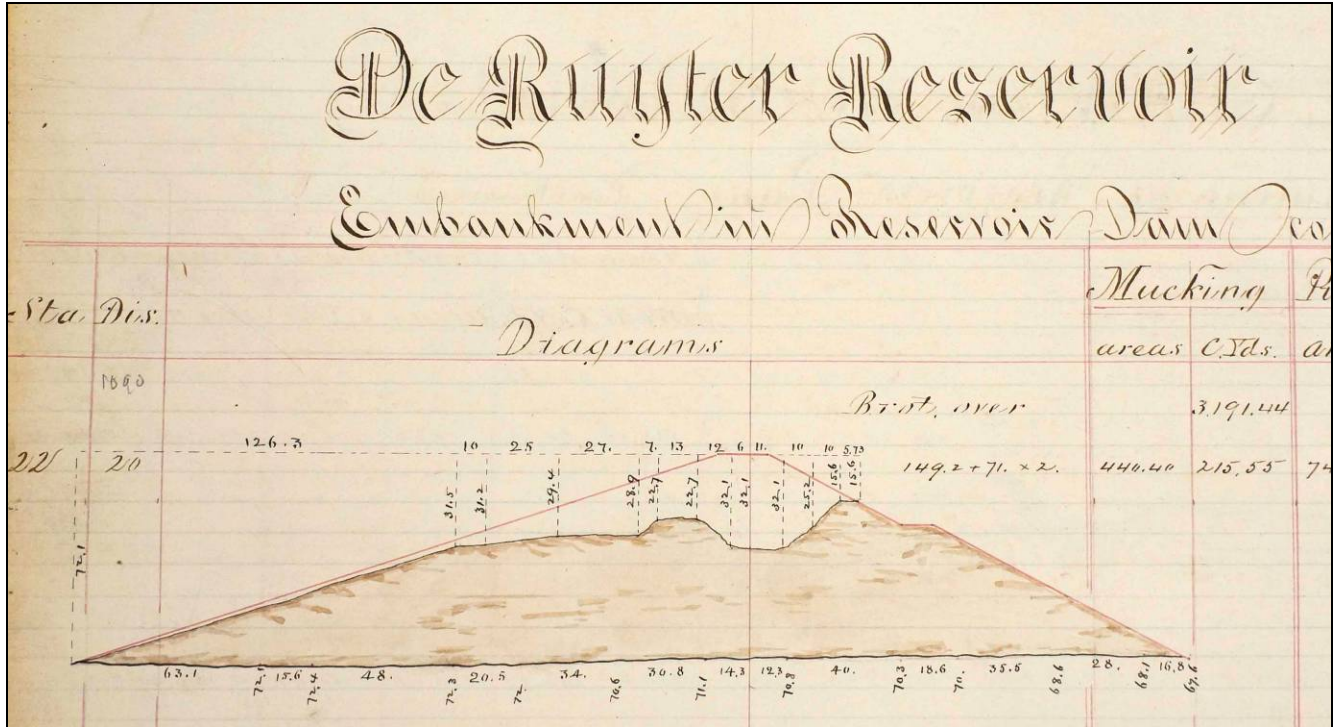 De Ruyter Reservoir
Embankment in Reservoir Dam
Mucking
Sta. Dis.
Diagrams
areas C.Yds.
1890
Brot. over 3,191.44
126.3 10 25 27. 7. 13 12 6 11. 10 10 5.73
22 20 149.2 + 71. × 2. 440.40 215.55 74
31.5 31.2 29.4 28.9 22.7 22.7 32.1 32.1 32.1 25.2 15.6 15.6
72.1
63.1 72.1 15.6 72.4 48. 72.3 20.5 72. 34. 70.6 30.8 71.1 14.3 12.3 70.8 40. 70.3 18.6 70. 35.5 68.6 28. 68.1 16.8 67.6